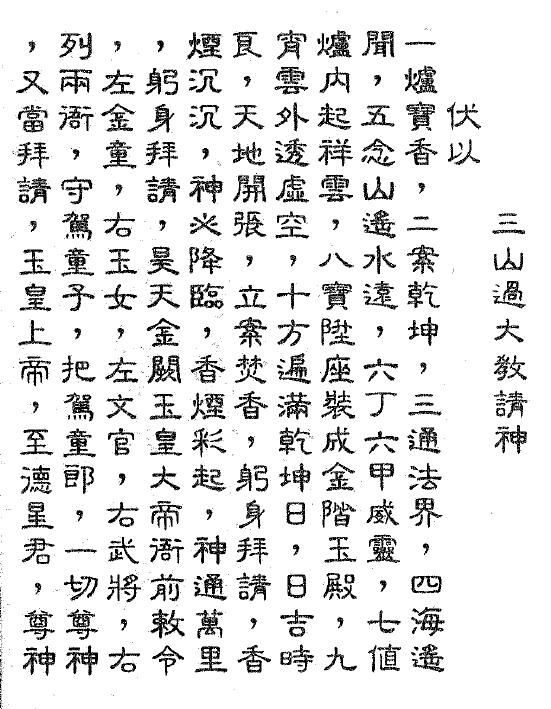 三山過大教請神
伏以
一爐寶香，二案乾坤，三通法界，四海遙
聞，五念山遙水遠，六丁六甲威靈，七値
爐內起祥雲，八寶陞座裝成金階玉殿，九
宵雲外透虛空，十方遍滿乾坤日，日吉時
良，天地開張，立案焚香，躬身拜請，香
煙沉沉，神必降臨，香煙彩起，神通萬里
，躬身拜請，昊天金闕玉皇大帝衙前敕令
，左金童，右玉女，左文官，右武將，右
列兩衙，守駕童子，把駕童郎，一切尊神
，又當拜請，玉皇上帝，至德星君，尊神